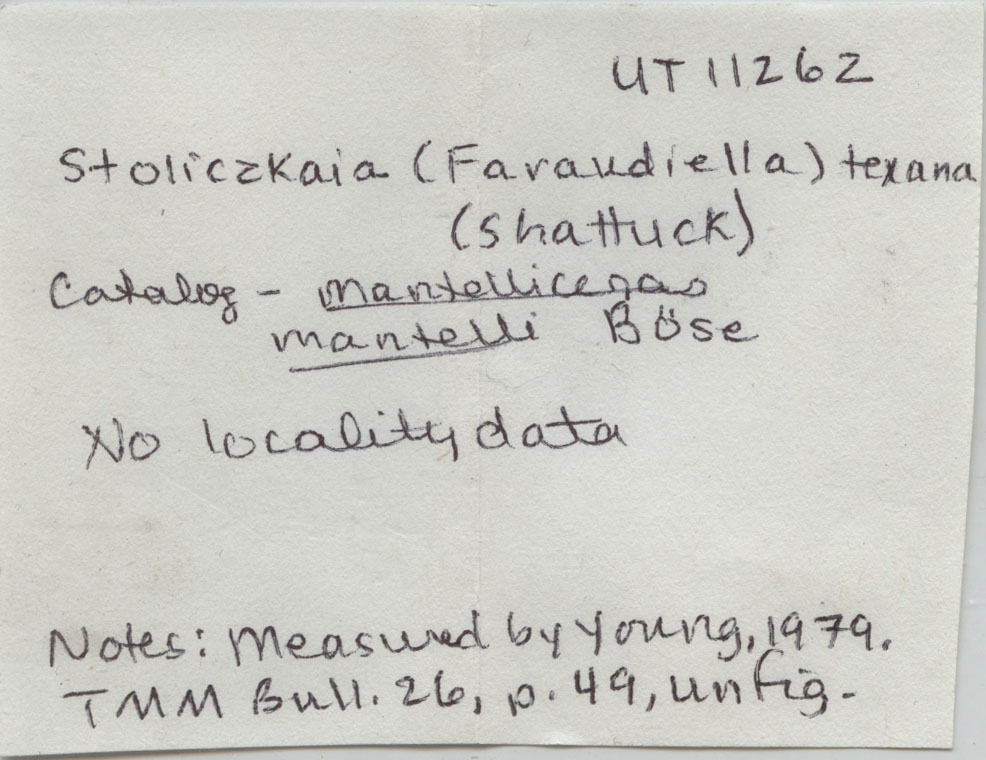 UT 11262
Stoliczkaia (Faraudiella) texana
(Shattuck)
Catalog - Mantelliceras
mantelli Böse
No locality data
Notes: Measured by Young, 1979.
TMM Bull. 26, p. 49, unfig.